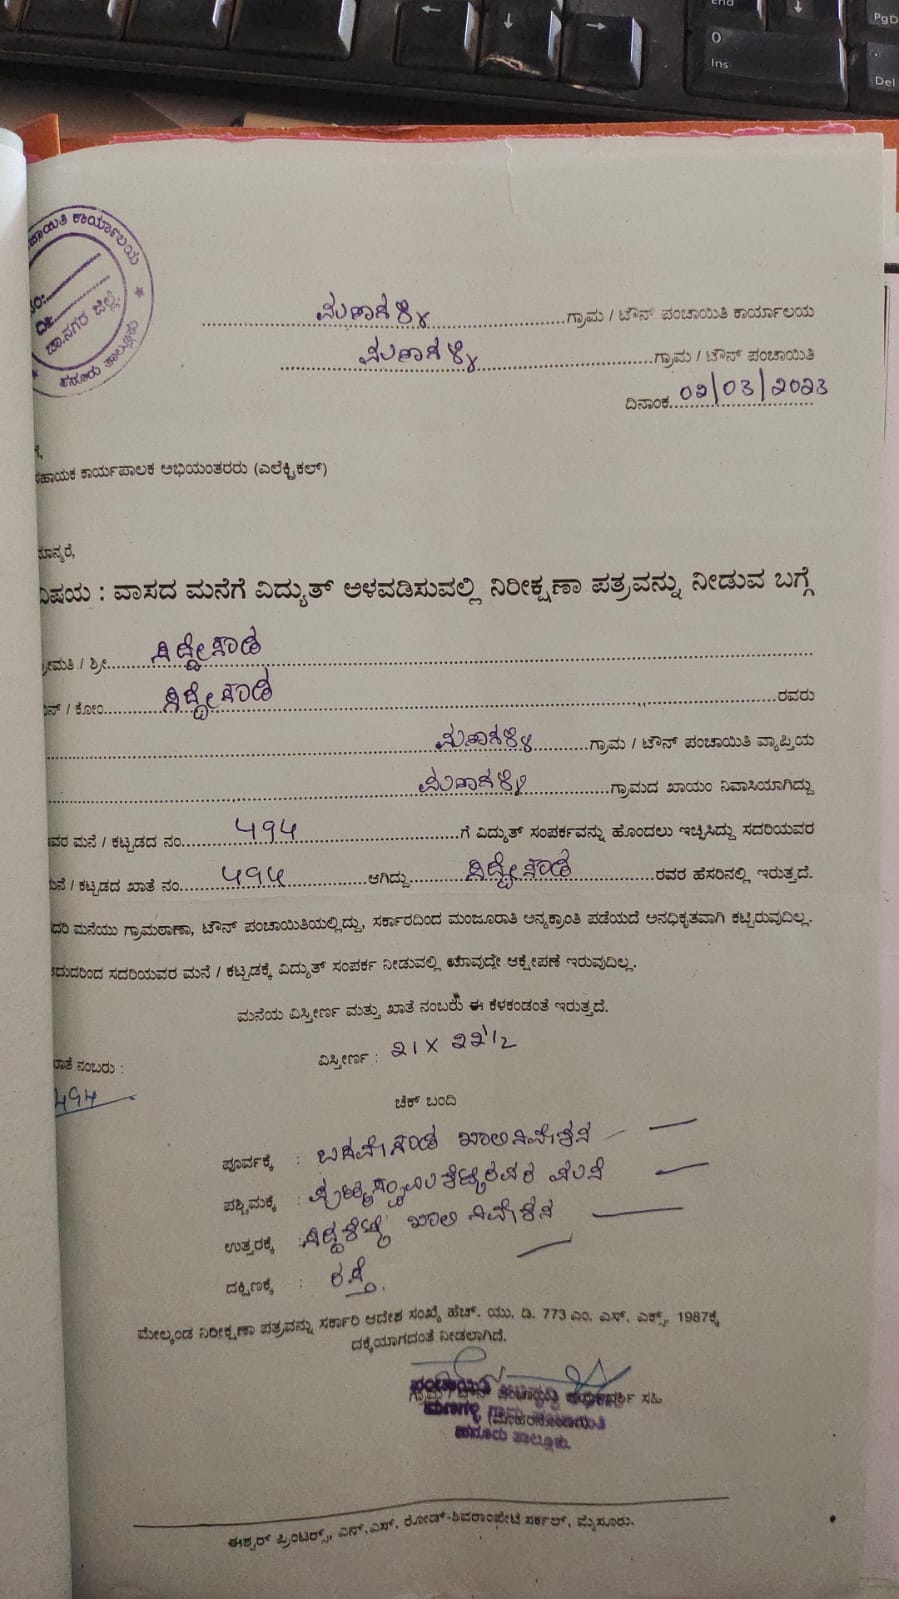 End
PgD
0
Ins
.
Del
ಕಾರ್ಯಾಲಯ
ದಿ:
ಚಾ.ನಗರ ಜಿಲ್ಲೆ.
ಹನೂರು ತಾಲ್ಲೂಕು
ಮಣಗಳ್ಳಿ ಗ್ರಾಮ / ಟೌನ್ ಪಂಚಾಯಿತಿ ಕಾರ್ಯಾಲಯ
ಮಣಗಳ್ಳಿ ಗ್ರಾಮ / ಟೌನ್ ಪಂಚಾಯಿತಿ
ದಿನಾಂಕ 02/03/2023
ಗೆ,
ಸಹಾಯಕ ಕಾರ್ಯಪಾಲಕ ಅಭಿಯಂತರರು (ಎಲೆಕ್ಟ್ರಿಕಲ್)
ಮಾನ್ಯರೆ,
ವಿಷಯ : ವಾಸದ ಮನೆಗೆ ವಿದ್ಯುತ್ ಅಳವಡಿಸುವಲ್ಲಿ ನಿರೀಕ್ಷಣಾ ಪತ್ರವನ್ನು ನೀಡುವ ಬಗ್ಗೆ
ಶ್ರೀಮತಿ / ಶ್ರೀ ಸಿದ್ದೇಗೌಡ
ಬಿನ್ / ಕೋಂ ಸಿದ್ದೇಗೌಡ ರವರು
ಮಣಗಳ್ಳಿ ಗ್ರಾಮ / ಟೌನ್ ಪಂಚಾಯಿತಿ ವ್ಯಾಪ್ತಿಯ
ಮಣಗಳ್ಳಿ ಗ್ರಾಮದ ಖಾಯಂ ನಿವಾಸಿಯಾಗಿದ್ದು
ಇವರ ಮನೆ / ಕಟ್ಟಡದ ನಂ. 494 ಗೆ ವಿದ್ಯುತ್ ಸಂಪರ್ಕವನ್ನು ಹೊಂದಲು ಇಚ್ಛಿಸಿದ್ದು ಸದರಿಯವರ
ಮನೆ / ಕಟ್ಟಡದ ಖಾತೆ ನಂ. 494 ಆಗಿದ್ದು ಸಿದ್ದೇಗೌಡ ರವರ ಹೆಸರಿನಲ್ಲಿ ಇರುತ್ತದೆ.
ಸದರಿ ಮನೆಯು ಗ್ರಾಮಠಾಣಾ, ಟೌನ್ ಪಂಚಾಯಿತಿಯಲ್ಲಿದ್ದು, ಸರ್ಕಾರದಿಂದ ಮಂಜೂರಾತಿ ಅನ್ಯಕ್ರಾಂತಿ ಪಡೆಯದೆ ಅನಧಿಕೃತವಾಗಿ ಕಟ್ಟಿರುವುದಿಲ್ಲ.
ಆದುದರಿಂದ ಸದರಿಯವರ ಮನೆ / ಕಟ್ಟಡಕ್ಕೆ ವಿದ್ಯುತ್ ಸಂಪರ್ಕ ನೀಡುವಲ್ಲಿ ಯಾವುದೇ ಆಕ್ಷೇಪಣೆ ಇರುವುದಿಲ್ಲ.
ಮನೆಯ ವಿಸ್ತೀರ್ಣ ಮತ್ತು ಖಾತೆ ನಂಬರು ಈ ಕೆಳಕಂಡಂತೆ ಇರುತ್ತದೆ.
ಖಾತೆ ನಂಬರು : ವಿಸ್ತೀರ್ಣ : 21 X 22 1/2
494
ಚೆಕ್ ಬಂದಿ
ಪೂರ್ವಕ್ಕೆ : ಬಸವೇಗೌಡ ಖಾಲಿ ನಿವೇಶನ
ಪಶ್ಚಿಮಕ್ಕೆ : ಮನೆ
ಉತ್ತರಕ್ಕೆ : ಸಿದ್ದಶೆಟ್ಟಿ ಖಾಲಿ ನಿವೇಶನ
ದಕ್ಷಿಣಕ್ಕೆ : ರಸ್ತೆ.
ಮೇಲ್ಕಂಡ ನಿರೀಕ್ಷಣಾ ಪತ್ರವನ್ನು ಸರ್ಕಾರಿ ಆದೇಶ ಸಂಖ್ಯೆ ಹೆಚ್. ಯು. ಡಿ. 773 ಎಂ. ಎಸ್. ಎಕ್ಸ್. 1987ಕ್ಕೆ
ದಕ್ಕೆಯಾಗದಂತೆ ನೀಡಲಾಗಿದೆ.
ಗ್ರಾಮ / ಟೌನ್ ಪಂಚಾಯ್ತಿ ಕಾರ್ಯದರ್ಶಿ ಸಹಿ
(ಮೊಹರಿನೊಂದಿಗೆ)
ಹನೂರು ತಾಲ್ಲೂಕು.
ಈಶ್ವರ್ ಪ್ರಿಂಟರ್ಸ್, ಎನ್.ಎಸ್. ರೋಡ್-ಶಿವರಾಂಪೇಟೆ ಸರ್ಕಲ್, ಮೈಸೂರು.